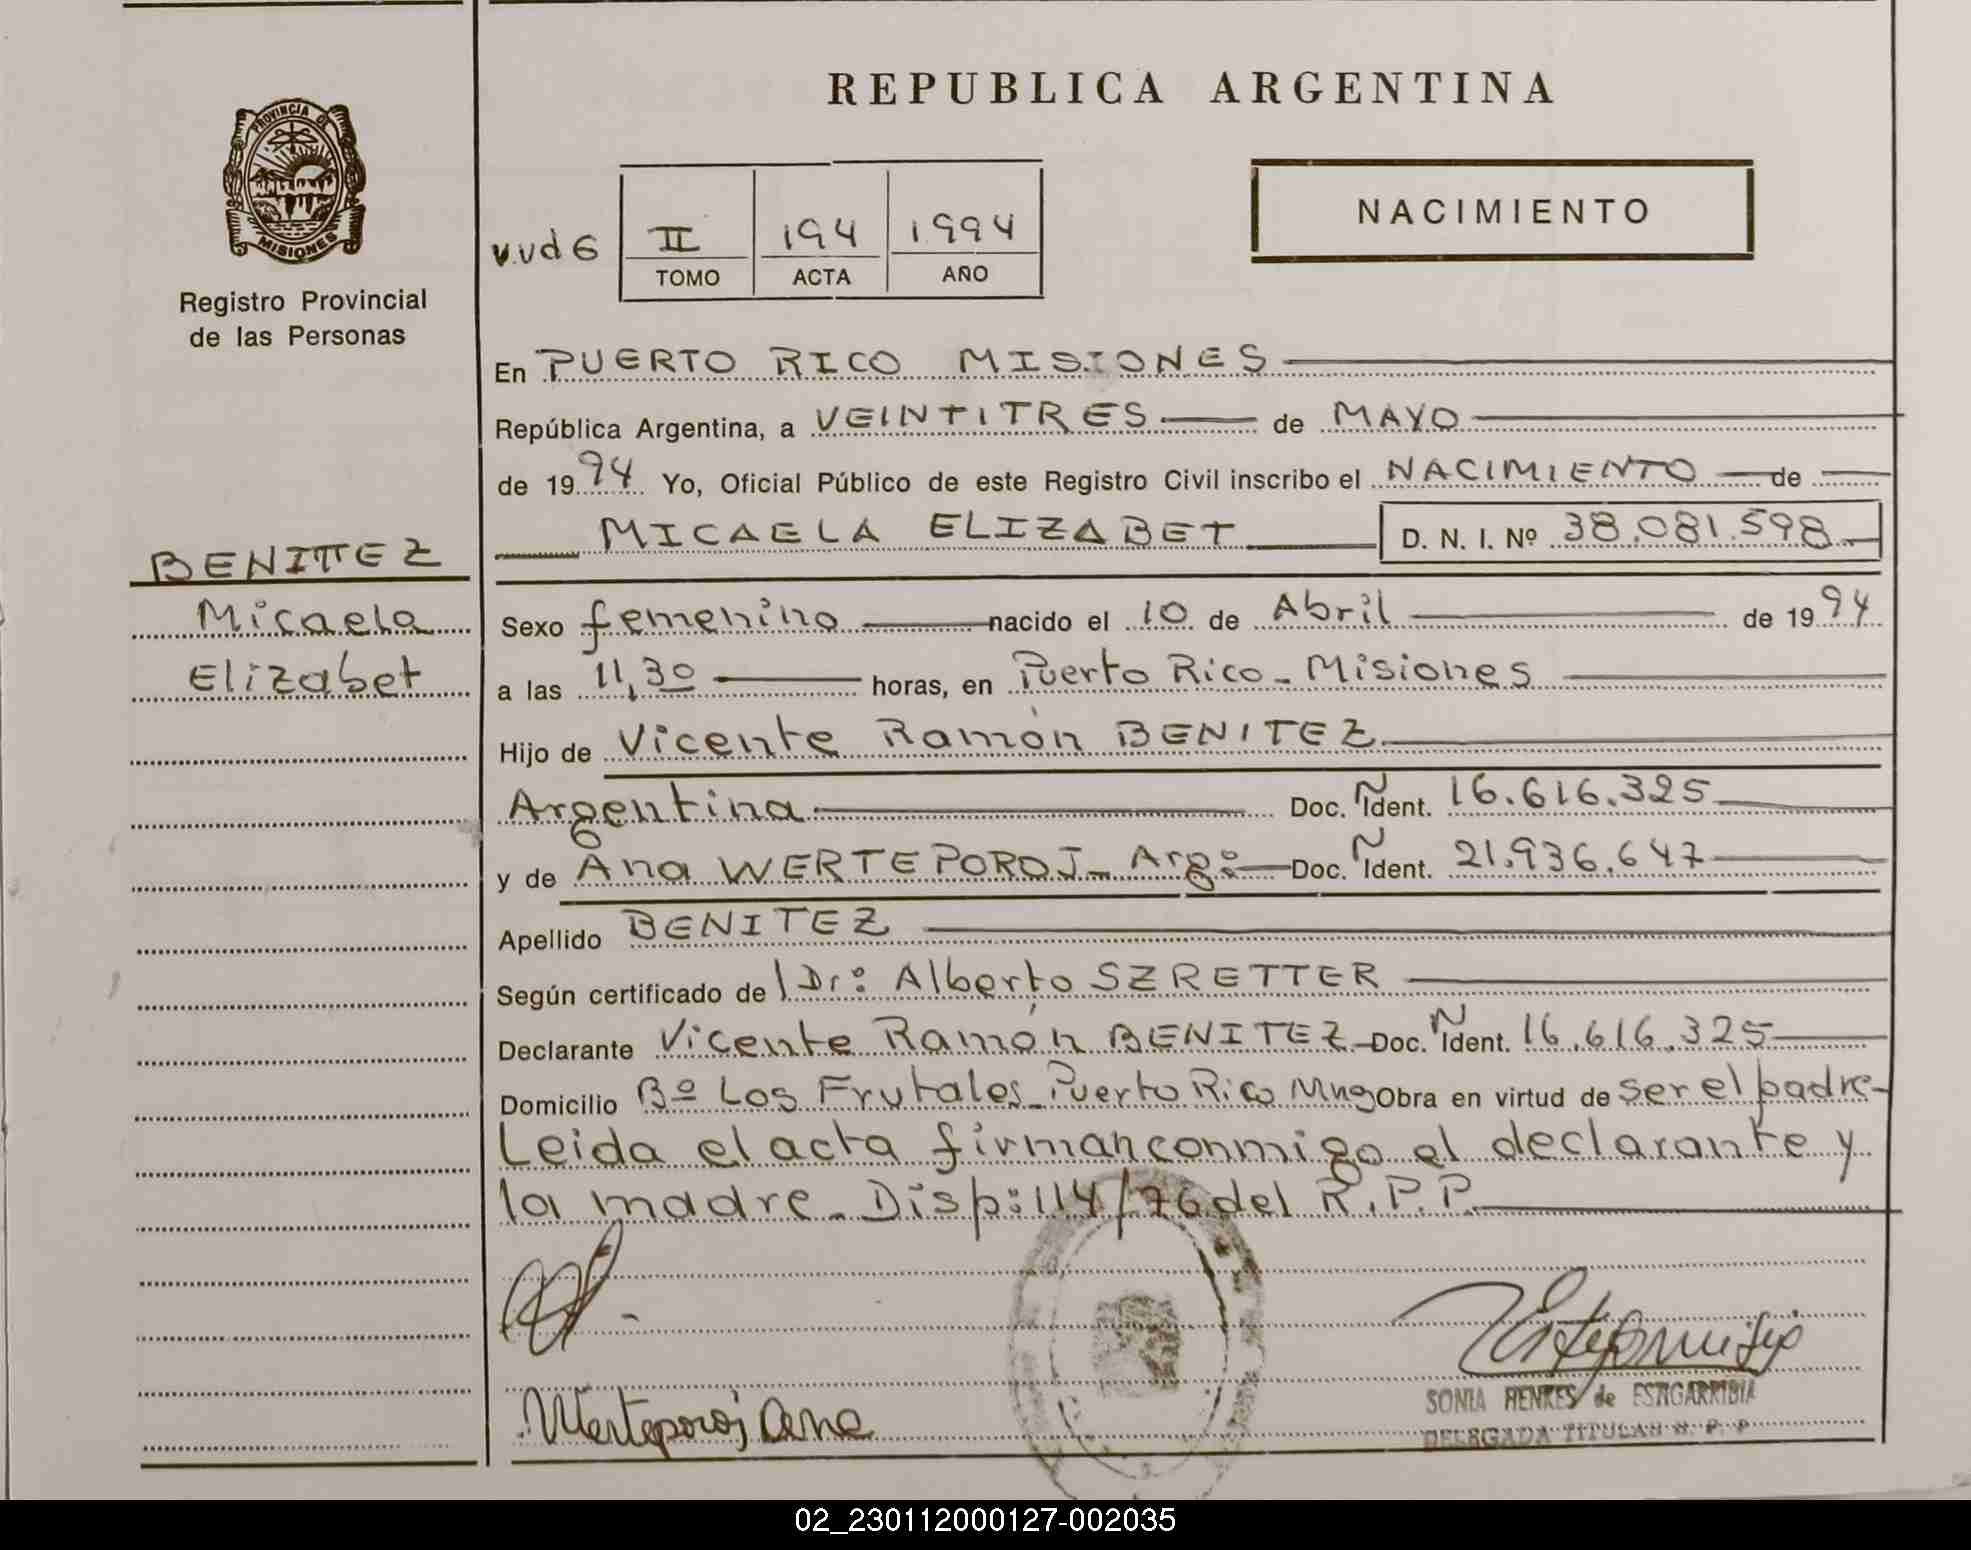 REPUBLICA ARGENTINA
PROVINCIA DE
MISIONES
Registro Provincial
de las Personas
NACIMIENTO
II 194 1994
TOMO ACTA AÑO
En PUERTO RICO MISIONES
República Argentina, a VEINTITRES de MAYO
de 1994 Yo, Oficial Público de este Registro Civil inscribo el NACIMIENTO de
MICAELA ELIZABET D. N. I. Nº 38.081.598
BENITEZ
Micaela
Elizabet
Sexo femenino nacido el 10 de Abril de 1994
a las 11,30 horas, en Puerto Rico - Misiones
Hijo de Vicente Ramón BENITEZ
Argentina Doc. Ñ Ident. 16.616.325
y de Ana WERTEPOROJ - Arg: Doc. Ñ Ident. 21.936.647
Apellido BENITEZ
Según certificado de l Dr: Alberto SZRETTER
Declarante Vicente Ramón BENITEZ Doc. Ident. 16.616.325
Domicilio Bº Los Frutales - Puerto Rico Mnes Obra en virtud de ser el padre-
Leida el acta firman conmigo el declarante y
la madre. Disp: 114/76 del R.P.P.
Werteporoj Ana
SONIA HENKES de ESTIGARRIBIA
DELEGADA TITULAR R. P. P.
02_230112000127-002035